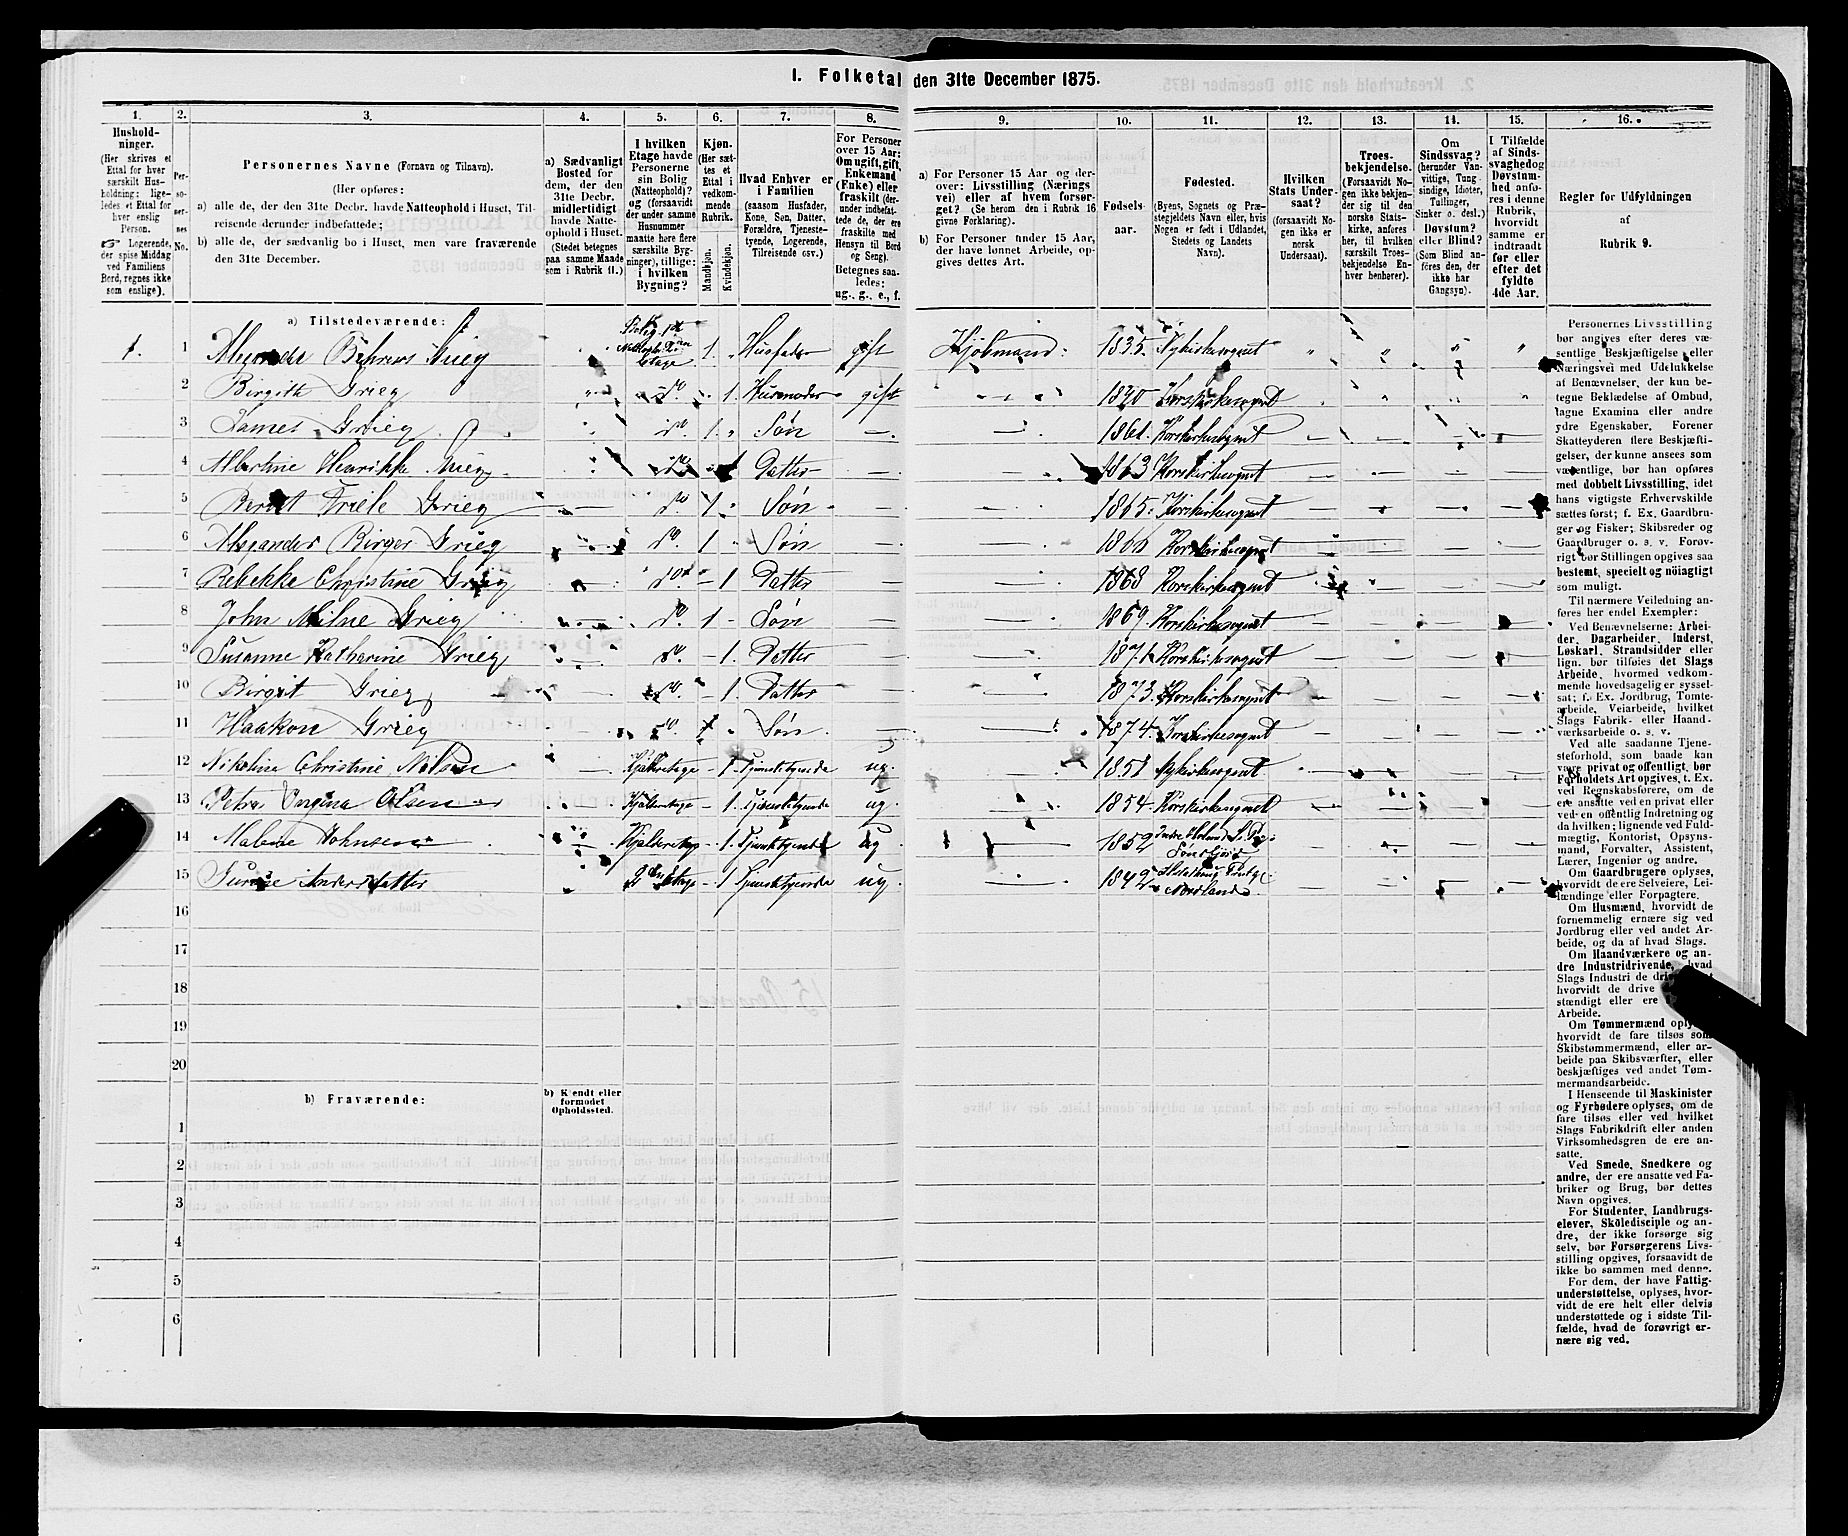 I. Folketal den 31te December 1875.
1. 2. 3. 4. 5. 6. 7. 8. 9. 10. 11. 12. 13. 14. 15. 16.
Hushold-
ninger.
(Her skrives et
Ettal for hver
særskilt Hus-
holdning; lige-
ledes et Ettal for
hver enslig
Person.
☞ Logerende,
der spise Middag
ved Familiens
Bord, regnes ikke
som enslige).
Per-
so-
ner-
nes
No.
Personernes Navne (Fornavn og Tilnavn).
(Her opføres:
a) alle de, der den 31te Decbr. havde Natteophold i Huset, Til-
reisende derunder indbefattede;
b) alle de, der sædvanlig bo i Huset, men vare fraværende
den 31te December.
a) Sædvanligt
Bosted for
dem, der den
31te Decbr.
midlertidigt
havde Natte-
ophold i Huset.
(Stedet betegnes
paa samme Maade
som i Rubrik 11.)
I hvilken
Etage havde
Personerne
sin Bolig
(Natteophold)?
og (forsaavidt
der under samme
Husnummer
maatte høre flere
særskilte Byg-
ninger), tillige:
i hvilken
Bygning?
Kjøn.
(Her sæt-
tes et
Ettal i
vedkom-
mende
Rubrik.
Mandkjøn.
Kvindekjøn.
Hvad Enhver er
i Familien
(saasom Husfader,
Kone, Søn, Datter,
Forældre, Tjeneste-
tyende, Logerende,
Tilreisende osv.)
For Personer
over 15 Aar:
Om ugift, gift,
Enkemand
(Enke) eller
fraskilt (der-
under indbefat-
tede de, der ere
fraskilte med
Hensyn til Bord
og Seng).
Betegnes saa-
ledes:
ug., g., e., f.
a) For Personer 15 Aar og der-
over: Livsstilling (Nærings
vei) eller af hvem forsør-
get? (Se herom den i Rubrik 16
givne Forklaring).
b) For Personer under 15 Aar,
der have lønnet Arbeide, op-
gives dettes Art.
Fødsels-
aar.
Fødested.
(Byens, Sognets og Præ-
stegjeldets Navn eller, hvis
Nogen er født i Udlandet,
Stedets og Landets
Navn).
Hvilken
Stats Under-
saat?
(forsaavidt No-
gen ikke er
norsk
Undersaat).
Troes-
bekjendelse.
(Forsaavidt No-
gen ikke bekjen-
der sig til den
norske Stats-
kirke, anføres
her, til hvilken
særskilt Troes-
bekjendelse En-
hver henhører).
Om
Sindssvag?
(herunder Van-
vittige, Tung-
sindige, Idioter,
Tullinger,
Sinker o. desl.)
Døvstum?
eller Blind?
(Som Blind an-
føres den, der
ikke har
Gangsyn).
I Tilfælde
af Sinds-
svaghed og
Døvstum-
hed anfø-
res i denne
Rubrik,
hvorvidt
samme er
indtraadt
før eller
efter det
fyldte
4de Aar.
Regler for Udfyldningen
af
Rubrik 9.
a) Tilstedeværende:
1. 1 Alexander Behrens Grieg 1. Husfader gift 1835. Nykirkesognet
2 Birgith Grieg do. 1. Husmoder gift 1840 Korskirkesognet
3 James Grieg do. 1. Søn 1861. Korskirkesognet
4 Albertine Henrikke Grieg do 1 Datter 1863 Korskirkesognet
5 Berent Friele Grieg do 1 Søn 1865. Korskirkesognet
6 Alexander Birger Grieg do. 1 Søn 1866 Korskirkesognet
7 Rebekke Christine Grieg do 1 Datter 1868 Korskirkesognet
8 John Milne Grieg do. 1 Søn 1869. Korskirkesognet
9 Susanne Katharine Grieg do. 1. Datter 1871 Korskirkesognet
10 Birgit Grieg do. 1. Datter 1873. Korskirkesognet
11 Haakon Grieg do. 1 Søn 1874. Korskirkesognet
12 Nikoline Christine Nilsen Kjælderetage 1. Tjenestetyende ug. Nykirkesognet
13 Petra Olsen Kjælderetage 1. Tjenestetyende ug. 1854. Korskirkesognet
14 Malene Johnsen Kjælderetage 1. Tjenestetyende ug 1852 Søndfjord
15 Andersdatter 2den Etage 1 Tjenestetyende ug. 1842 Nordland
16
17
18
19
20
b) Fraværende:
b) Kjendt eller
formodet
Opholdssted.
1
2
3
4
5
6
Personernes Livsstilling
bør angives efter deres væ-
sentlige Beskjæftigelse eller
Næringsvei med Udelukkelse
af Benævnelser, der kun be-
tegne Beklædelse af Ombud,
tagne Examina eller andre
ydre Egenskaber. Forener
Skatteyderen flere Beskjæfti-
gelser, der kunne ansees som
væsentlige, bør han opføres
med dobbelt Livsstilling, idet
hans vigtigste Erhvervskilde
sættes først; f. Ex. Gaardbru-
ger og Fisker; Skibsreder og
Gaardbruger o. s. v. Forøv-
rigt bør Stillingen opgives saa
bestemt, specielt og nöiagtigt
som muligt.
Til nærmere Veiledning an-
føres her endel Exempler:
Ved Benævnelserne: Arbei-
der, Dagarbeider, Inderst,
Løskarl, Strandsidder eller
lign. bør tilføies det Slags
Arbeide, hvormed vedkom-
mende hovedsagelig er syssel-
sat; f. Ex. Jordbrug, Tomte-
arbeide, Veiarbeide, hvilket
Slags Fabrik- eller Haand-
værksarbeide o. s. v.
Ved alle saadanne Tjene-
steforhold, som baade kan
være privat og offentligt, bør
Forholdets Art opgives, t. Ex.
ved Regnskabsførere, om de
ere ansatte ved en privat eller
ved en offentlig Indretning og
da hvilken; lignende ved Fuld-
mægtig, Kontorist, Opsyns-
mand, Forvalter, Assistent,
Lærer, Ingeniør og andre.
Om Gaardbrugere oplyses,
hvorvidt de ere Selveiere, Lei-
lændinge eller Forpagtere.
Om Husmænd, hvorvidt de
fornemmelig ernære sig ved
Jordbrug eller ved andet Ar-
beide, og da af hvad Slags.
Om Haandværkere og an-
dre Industridrivende, hvad
Slags Industri de
hvorvidt de drive
stændigt eller ere
Arbeide.
Om Tømmermænd
hvorvidt de fare tilsøs som
Skibstømmermænd, eller ar-
beide paa Skibsværfter, eller
beskjæftiges ved andet Tøm-
mermandsarbeide.
I Henseende til Maskinister
og Fyrbødere oplyses, om de
fare tilsøs eller ved hvilket
Slags Fabrikdrift eller anden
Virksomhedsgren de ere an-
satte.
Ved Smede, Snedkere og
andre, der ere ansatte ved Fa-
briker og Brug, bør dettes
Navn opgives.
For Studenter, Landbrugs-
elever, Skoledisciple og an-
dre, der ikke forsørge sig
selv, bør Forsørgerens Livs-
stilling opgives, forsaavidt de
ikke bo sammen med denne.
For dem, der have Fattig-
understøttelse, oplyses, hvor-
vidt de ere helt eller delvis
understøttede og i sidste Til-
fælde, hvad de forøvrigt er-
nære sig ved.